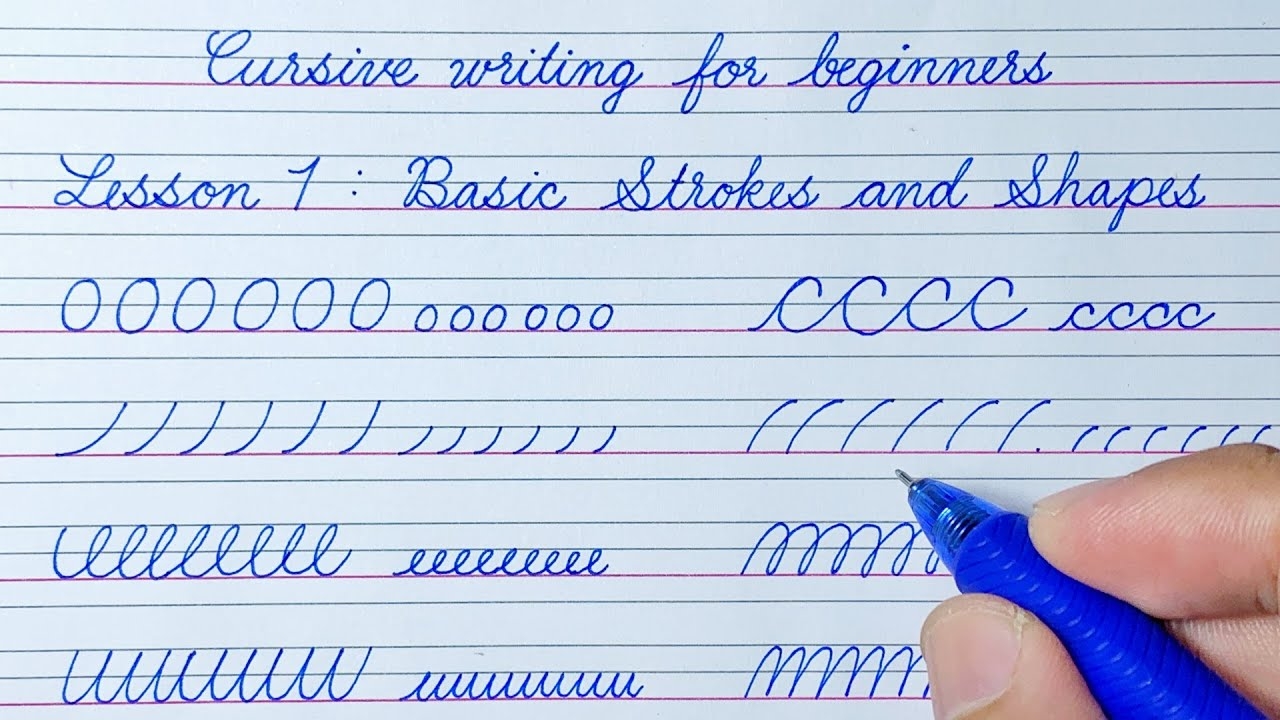 Cursive writing for beginners
Lesson 1 : Basic Strokes and Shapes
OOOOOO oooooo CCCC cccc